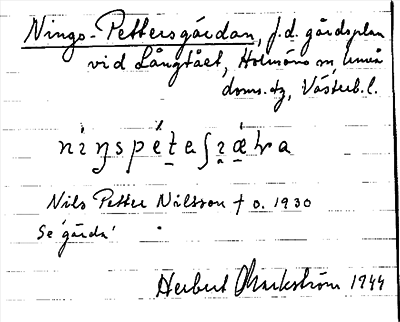 Nings-Pettersgårdan, f.d. gårdsplan
vid Långtået, Holmöns sn Umeå
doms.tg, Västerb.l.
Nils Petter Nilsson † o. 1930
Se 'gårda'
Herbert Markström 1944